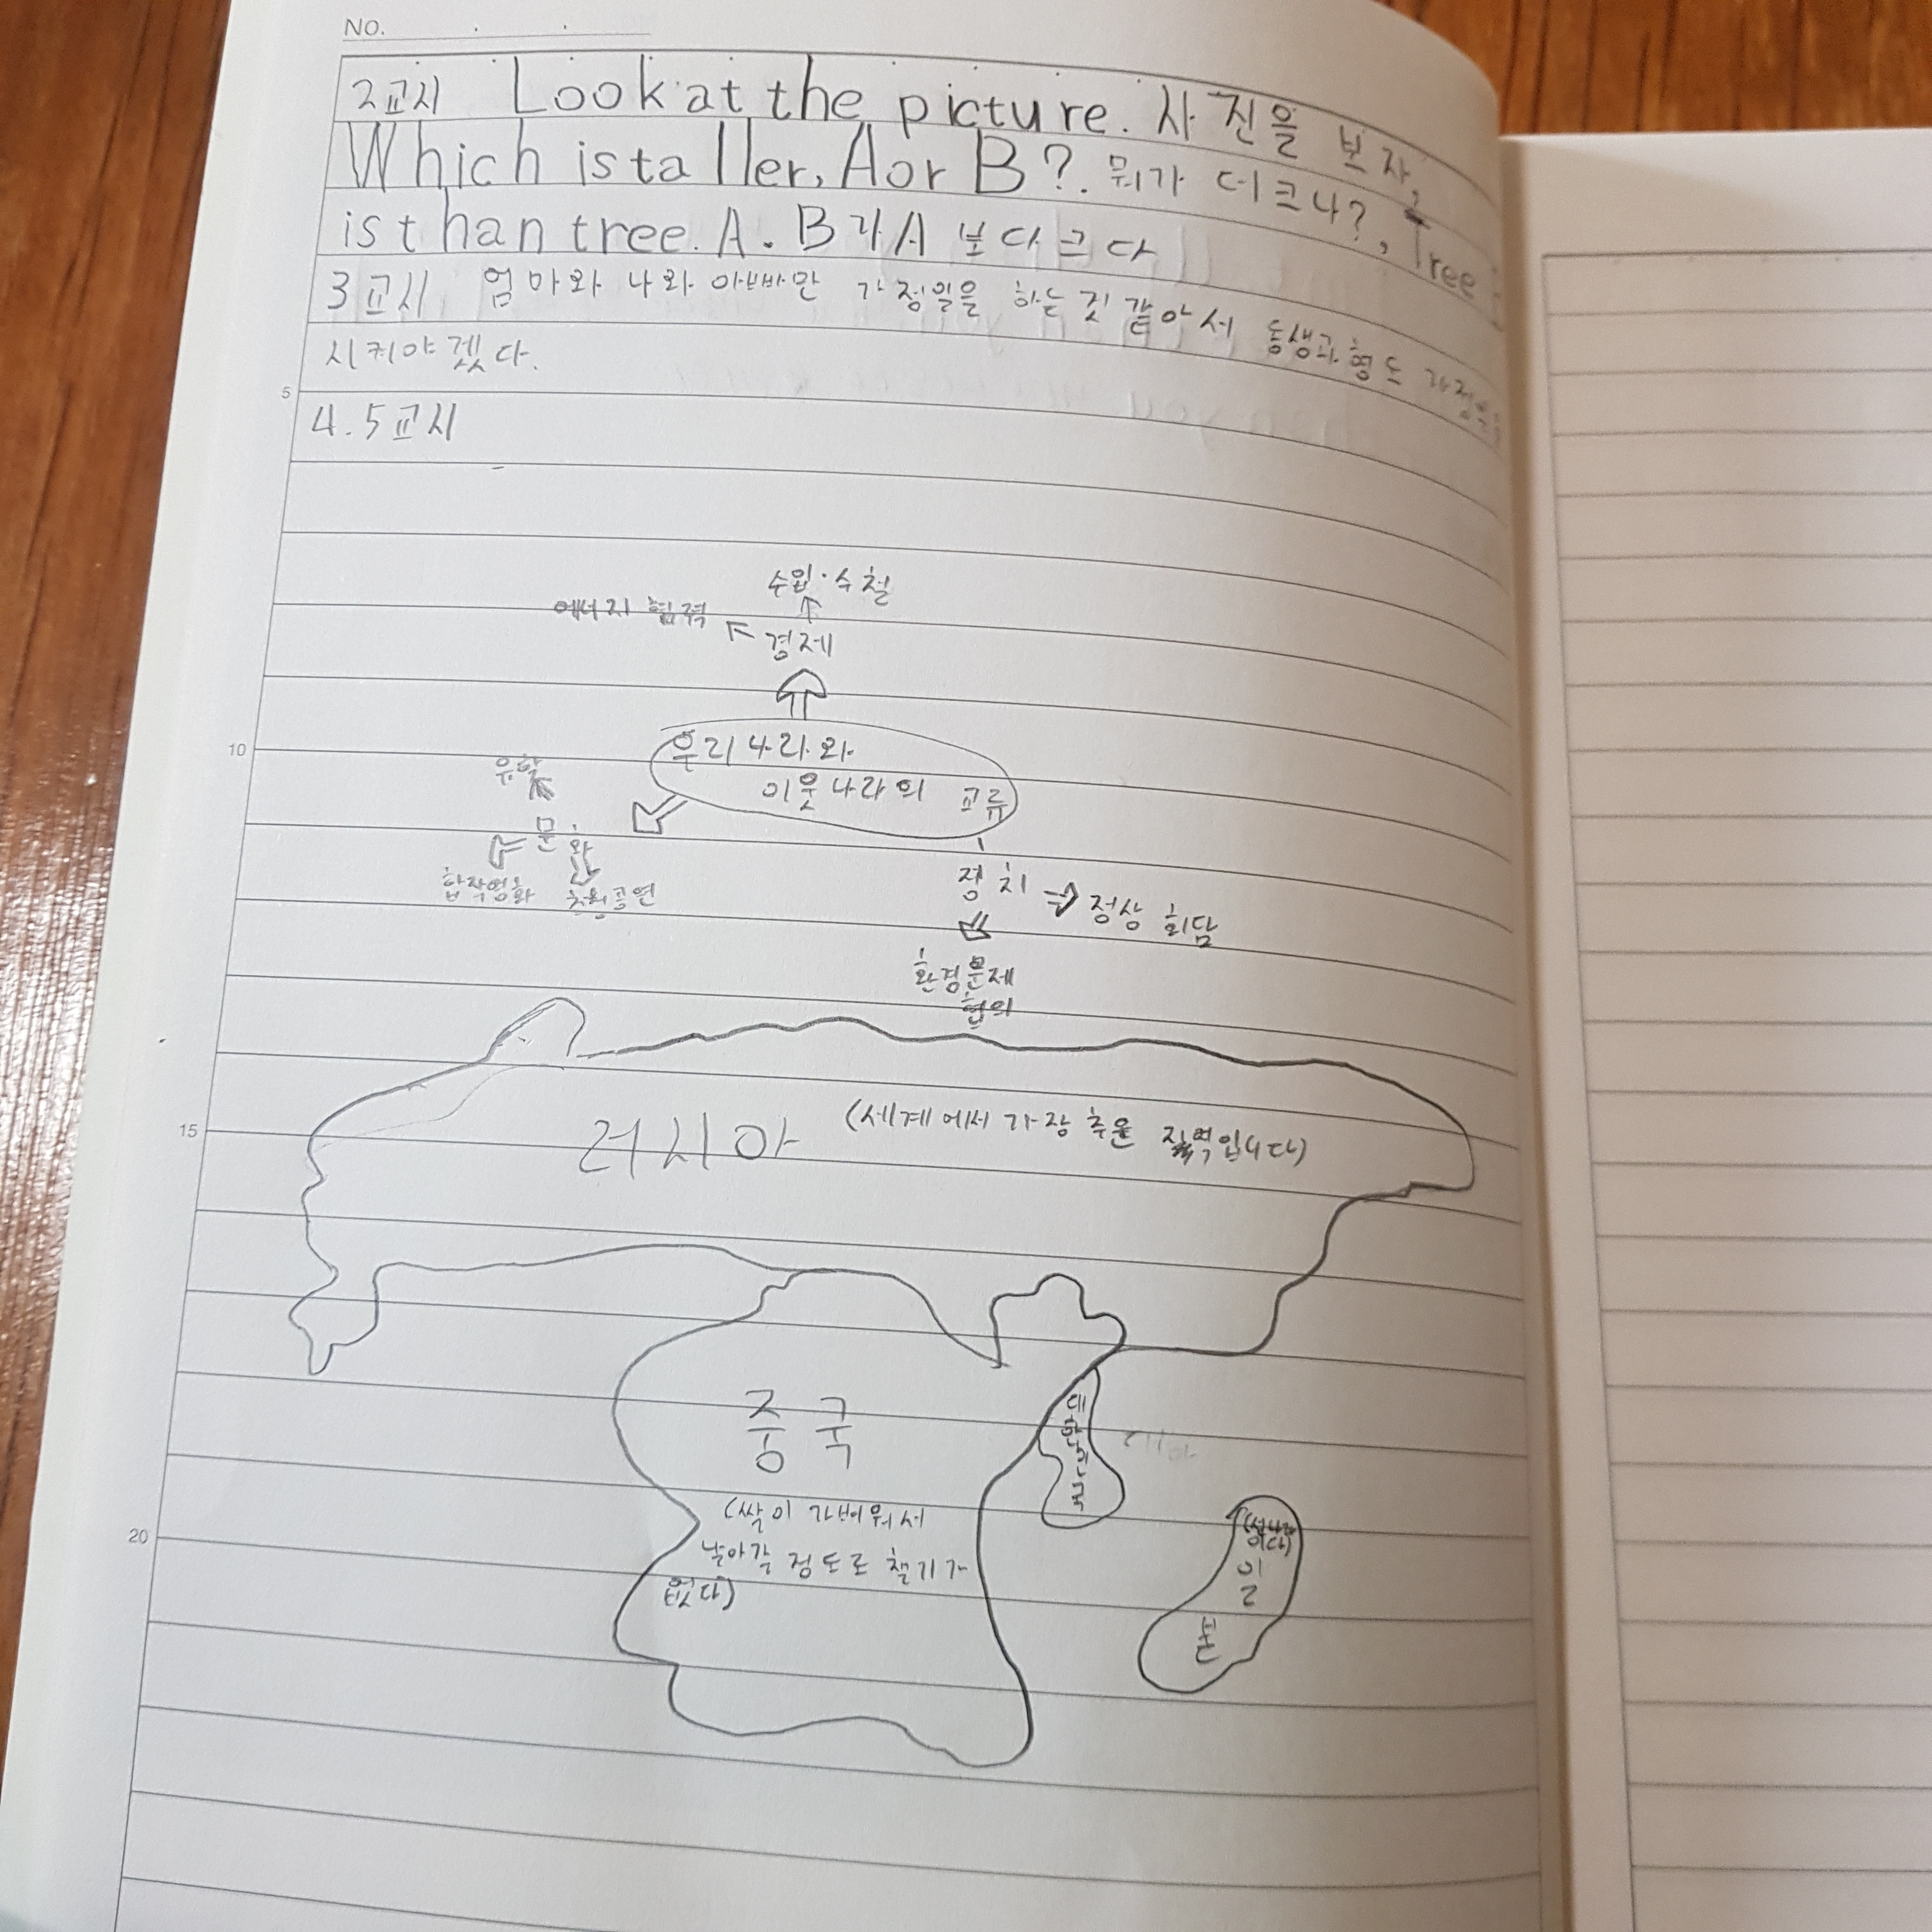 NO.
2교시 Look at the picture. 사진을 보자,
Which is taller, A or B?. 뭐가 더크나?, Tree B
is than tree. A. B가 A 보다 크다
3교시 엄마와 나와 아빠만 가정일을 하는 것 같아서 동생과 형도 가정일을
시켜야겠다.
5
4.5교시
수입·수출
에너지 협력
경제
10
우리나라와
이웃나라의 교류
유학
문화
합작영화
초청공연
정치
정상 회담
환경문제
협의
15
러시아 (세계에서 가장 추운 지역입니다)
중국
대한민국
러시아
(쌀이 가벼워서
날아갈 정도로 찰기가
없다)
20
(섬나라
이다)
일
본